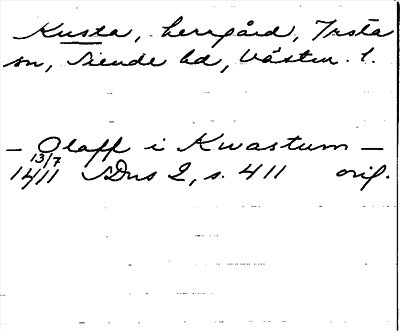 Kusta, herrgård, Irsta
sn, Siende hd, Västm. l.
— Olaff i Kwastum —
13/7
1411 SDns 2, s. 411 orig.